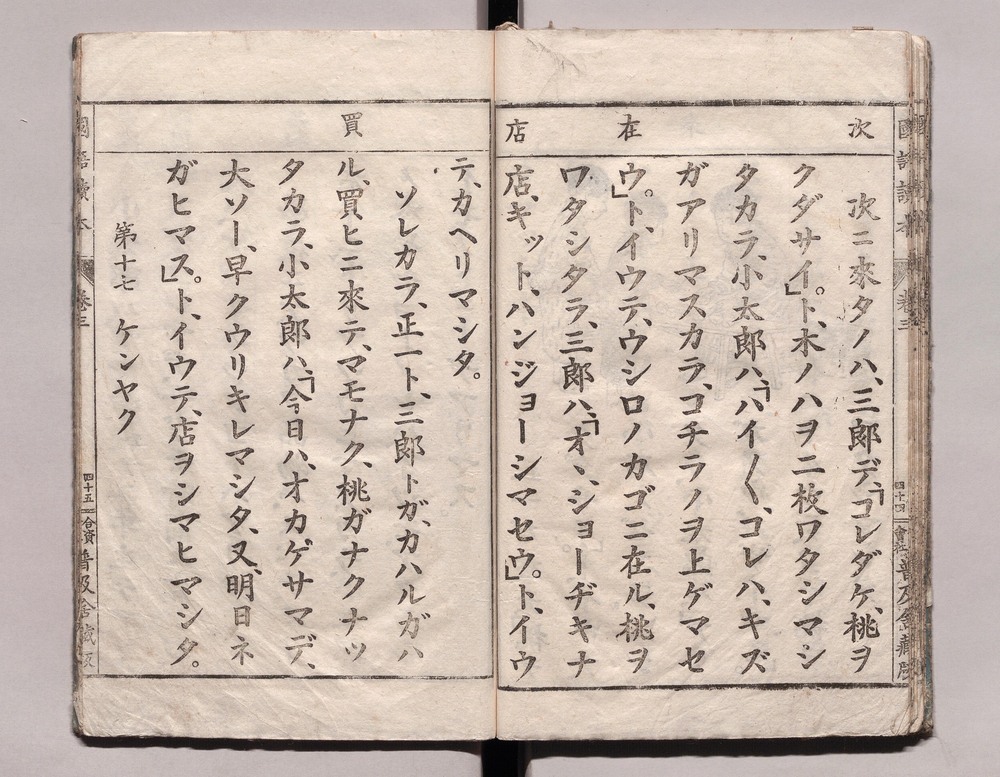 次
在
店
次ニ來タノハ、三郎デ、「コレダケ、桃ヲ
クダサイ。」ト、木ノハヲ二枚ワタシマシ
タカラ、小太郎ハ、「ハイ〳〵、コレハ、キズ
ガアリマスカラ、コチラノヲ上ゲマセ
ウ。」ト、イウテ、ウシロノカゴニ在ル、桃ヲ
ワタシタラ、三郎ハ、「オヽ、ショーヂキナ
店、キット、ハンジョーシマセウ。」ト、イウ
國語讀本
卷三
四十四
會社
普及舍藏版
買
テ、カヘリマシタ。
ソレカラ、正一ト、三郎トガ、カハルガハ
ル、買ヒニ來テ、マモナク、桃ガナクナッ
タカラ、小太郎ハ、「今日ハ、オカゲサマデ、
大ソー、早クウリキレマシタ、又、明日ネ
ガヒマス。」ト、イウテ、店ヲシマヒマシタ。
第十七 ケンヤク
國語讀本
卷三
四十五
合資
普及舍藏版